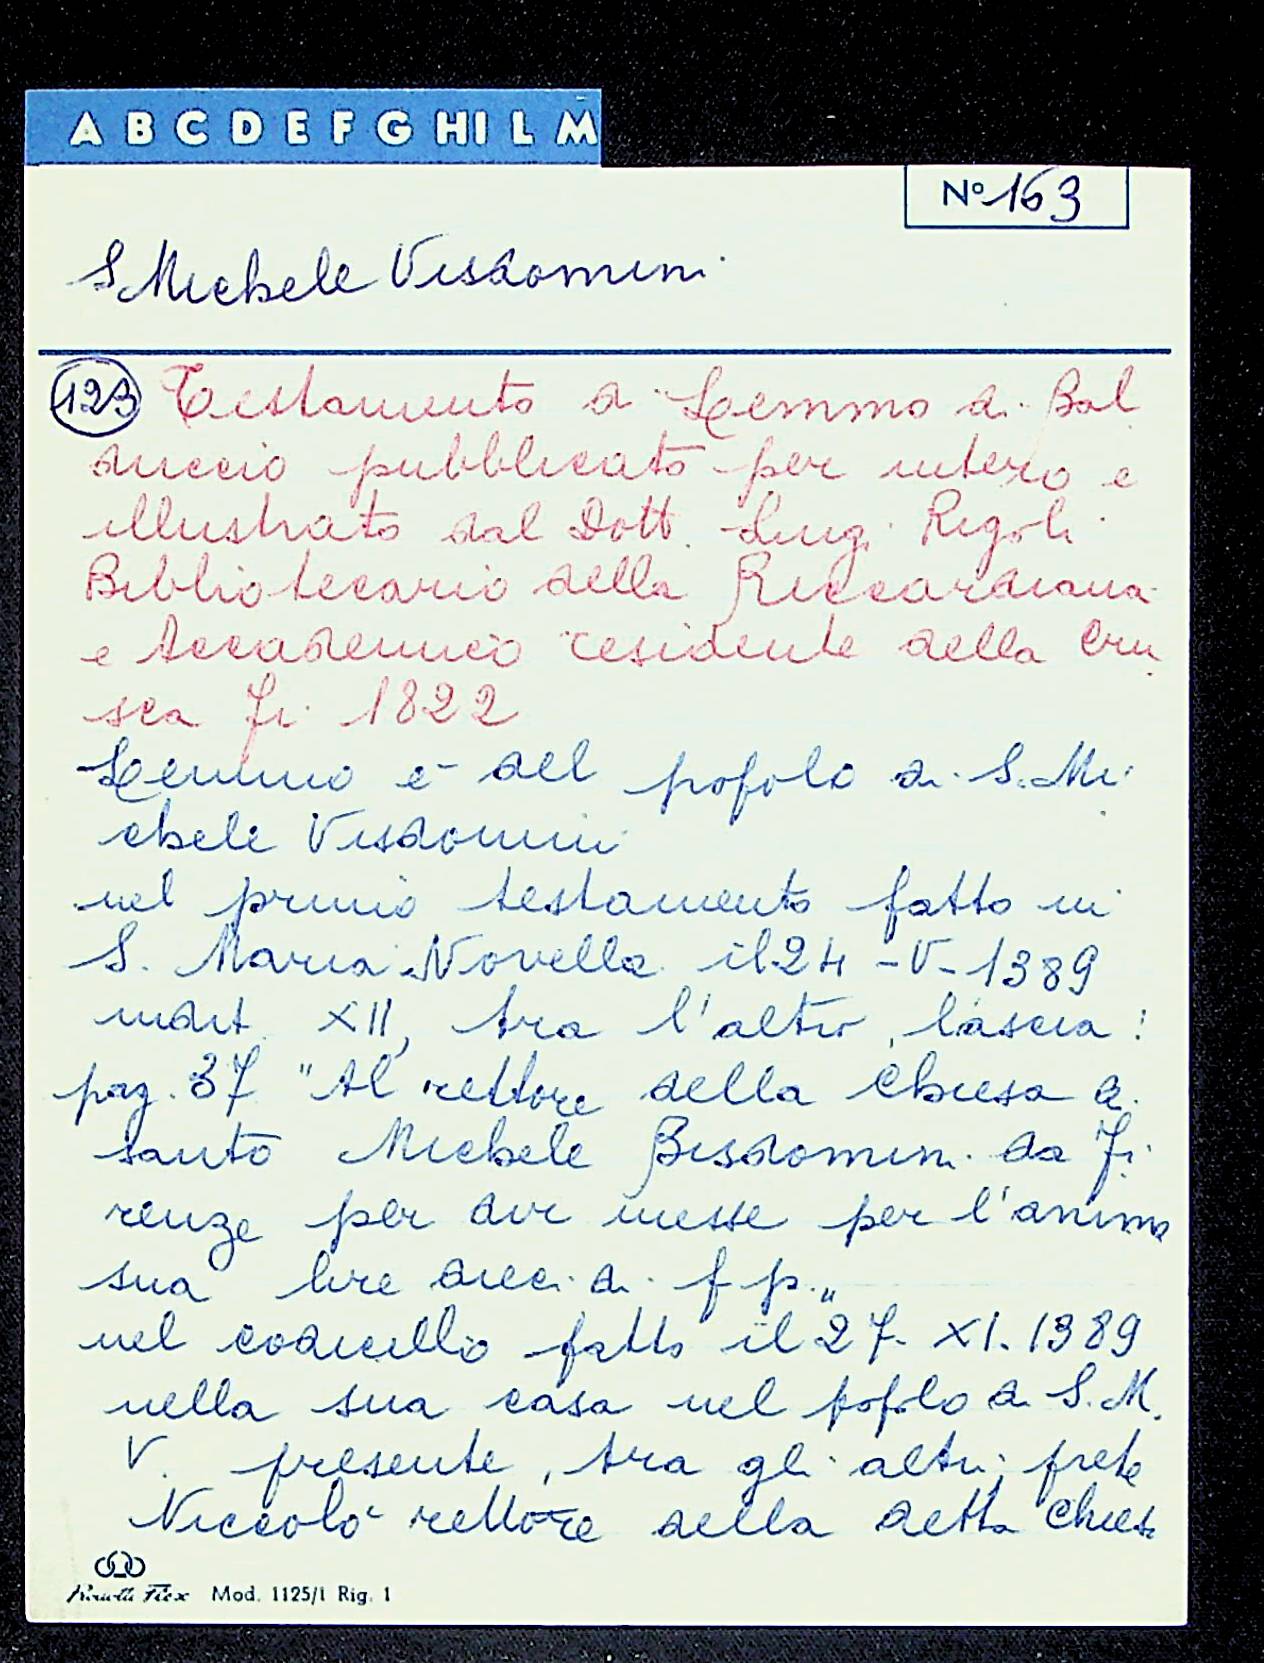 A B C D E F G HI L M
Nº 163
S Michele Visdomini
123 Testamento di Lemmo di Bal
duccio pubblicato per intero e
illustrato dal Dott. Luigi Rigoli
Bibliotecario della Riccardiana
e Accademico residente della Cru
sca Fi 1822
Lemmo è del popolo di S. Mi
chele Visdomini
nel primo testamento fatto in
S. Maria Novella il 24 - V - 1389
indict XII, tra l'altro, lascia:
pag. 37 "Al rettore della Chiesa di
santo Michele Bisdomini da Fi
renze per dir messe per l'anima
sua lire dieci di f p."
nel codicillo fatto il 27. XI. 1389
nella sua casa nel popolo di S. M.
V. presente, tra gli altri, prete
Niccolò rettore della detta Chiesa
Mod. 1125/1 Rig. 1